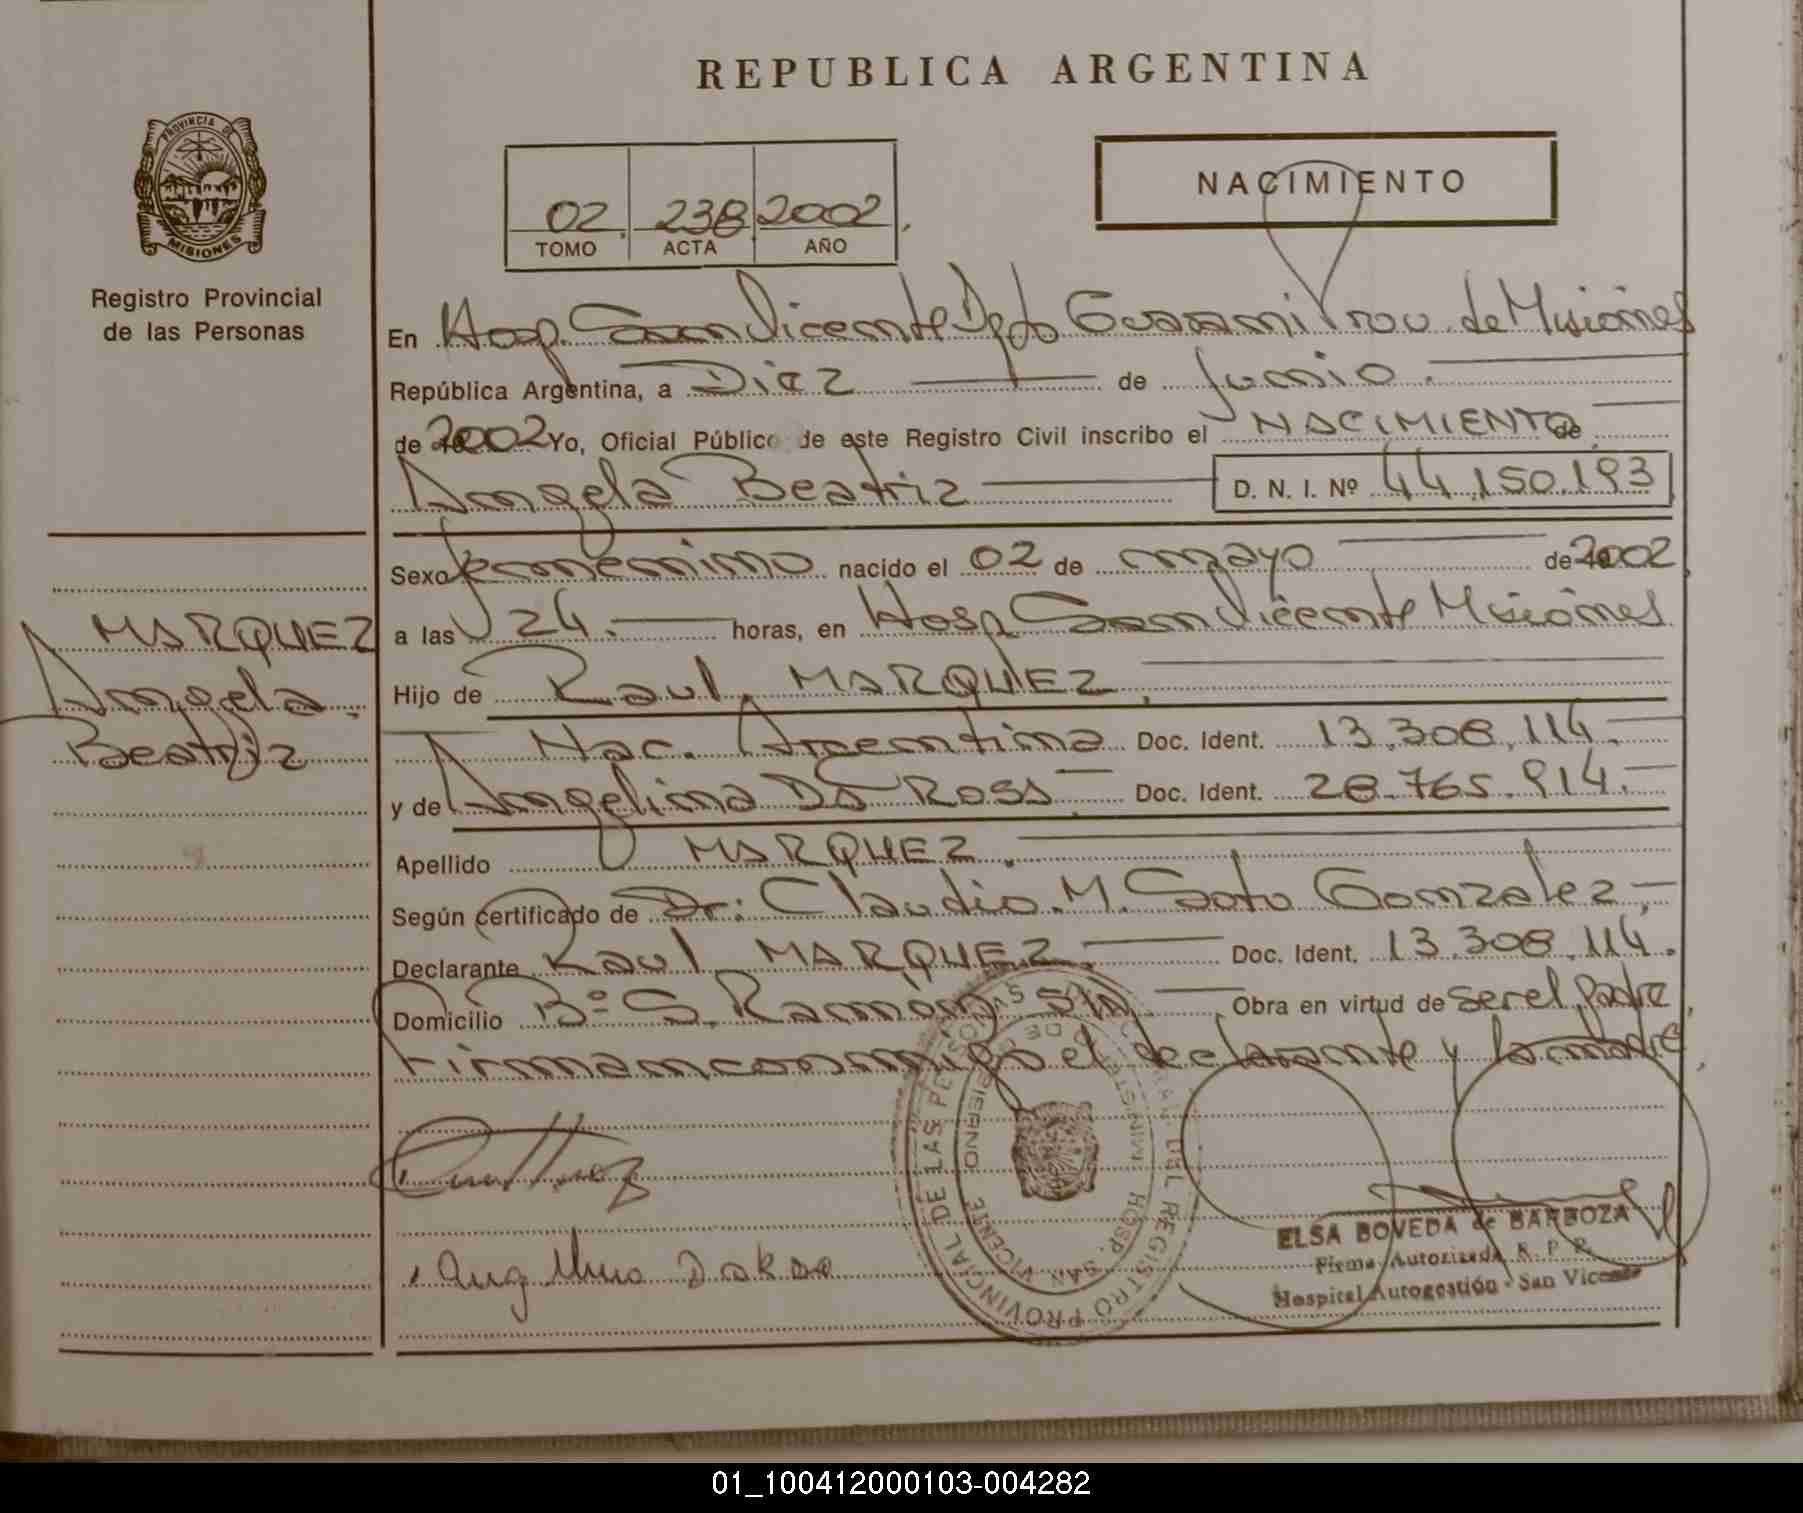 REPUBLICA ARGENTINA
PROVINCIA DE
MISIONES
Registro Provincial
de las Personas
02 238 2002
TOMO ACTA AÑO
NACIMIENTO
En Hosp. San Vicente Dpto Guarani Prov. de Misiones
República Argentina, a Diez de Junio.
de 2002 Yo, Oficial Público de este Registro Civil inscribo el NACIMIENTO de
Angela Beatriz D. N. I. Nº 44.150.193
Sexo femenino nacido el 02 de mayo de 2002
a las 24. horas, en Hosp San Vicente Misiones
Hijo de Raul MARQUEZ.
Nac. Argentina Doc. Ident. 13.308.114.
y de Angelina Da Rosa Doc. Ident. 28.765.914.
Apellido MARQUEZ.
Según certificado de Dr: Claudio. M. Soto Gonzalez,
Declarante Raul MARQUEZ. Doc. Ident. 13.308.114.
Domicilio Bº S. Ramón S/n. Obra en virtud de ser el padre,
Firman conmigo el declarante y la madre,
MARQUEZ
Angela
Beatriz
REGISTRO PROVINCIAL DE LAS PERSONAS
HOSP. SAN VICENTE
ELSA BOVEDA de BARBOZA
Firma Autorizada R. P. P.
Hospital Autogestión - San Vicente
01_100412000103-004282